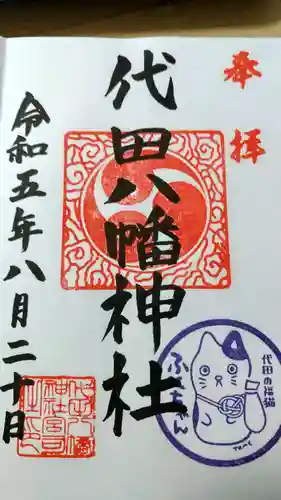 奉拝
代田八幡神社
令和五年八月二十日
代田の福猫
ふくちゃん